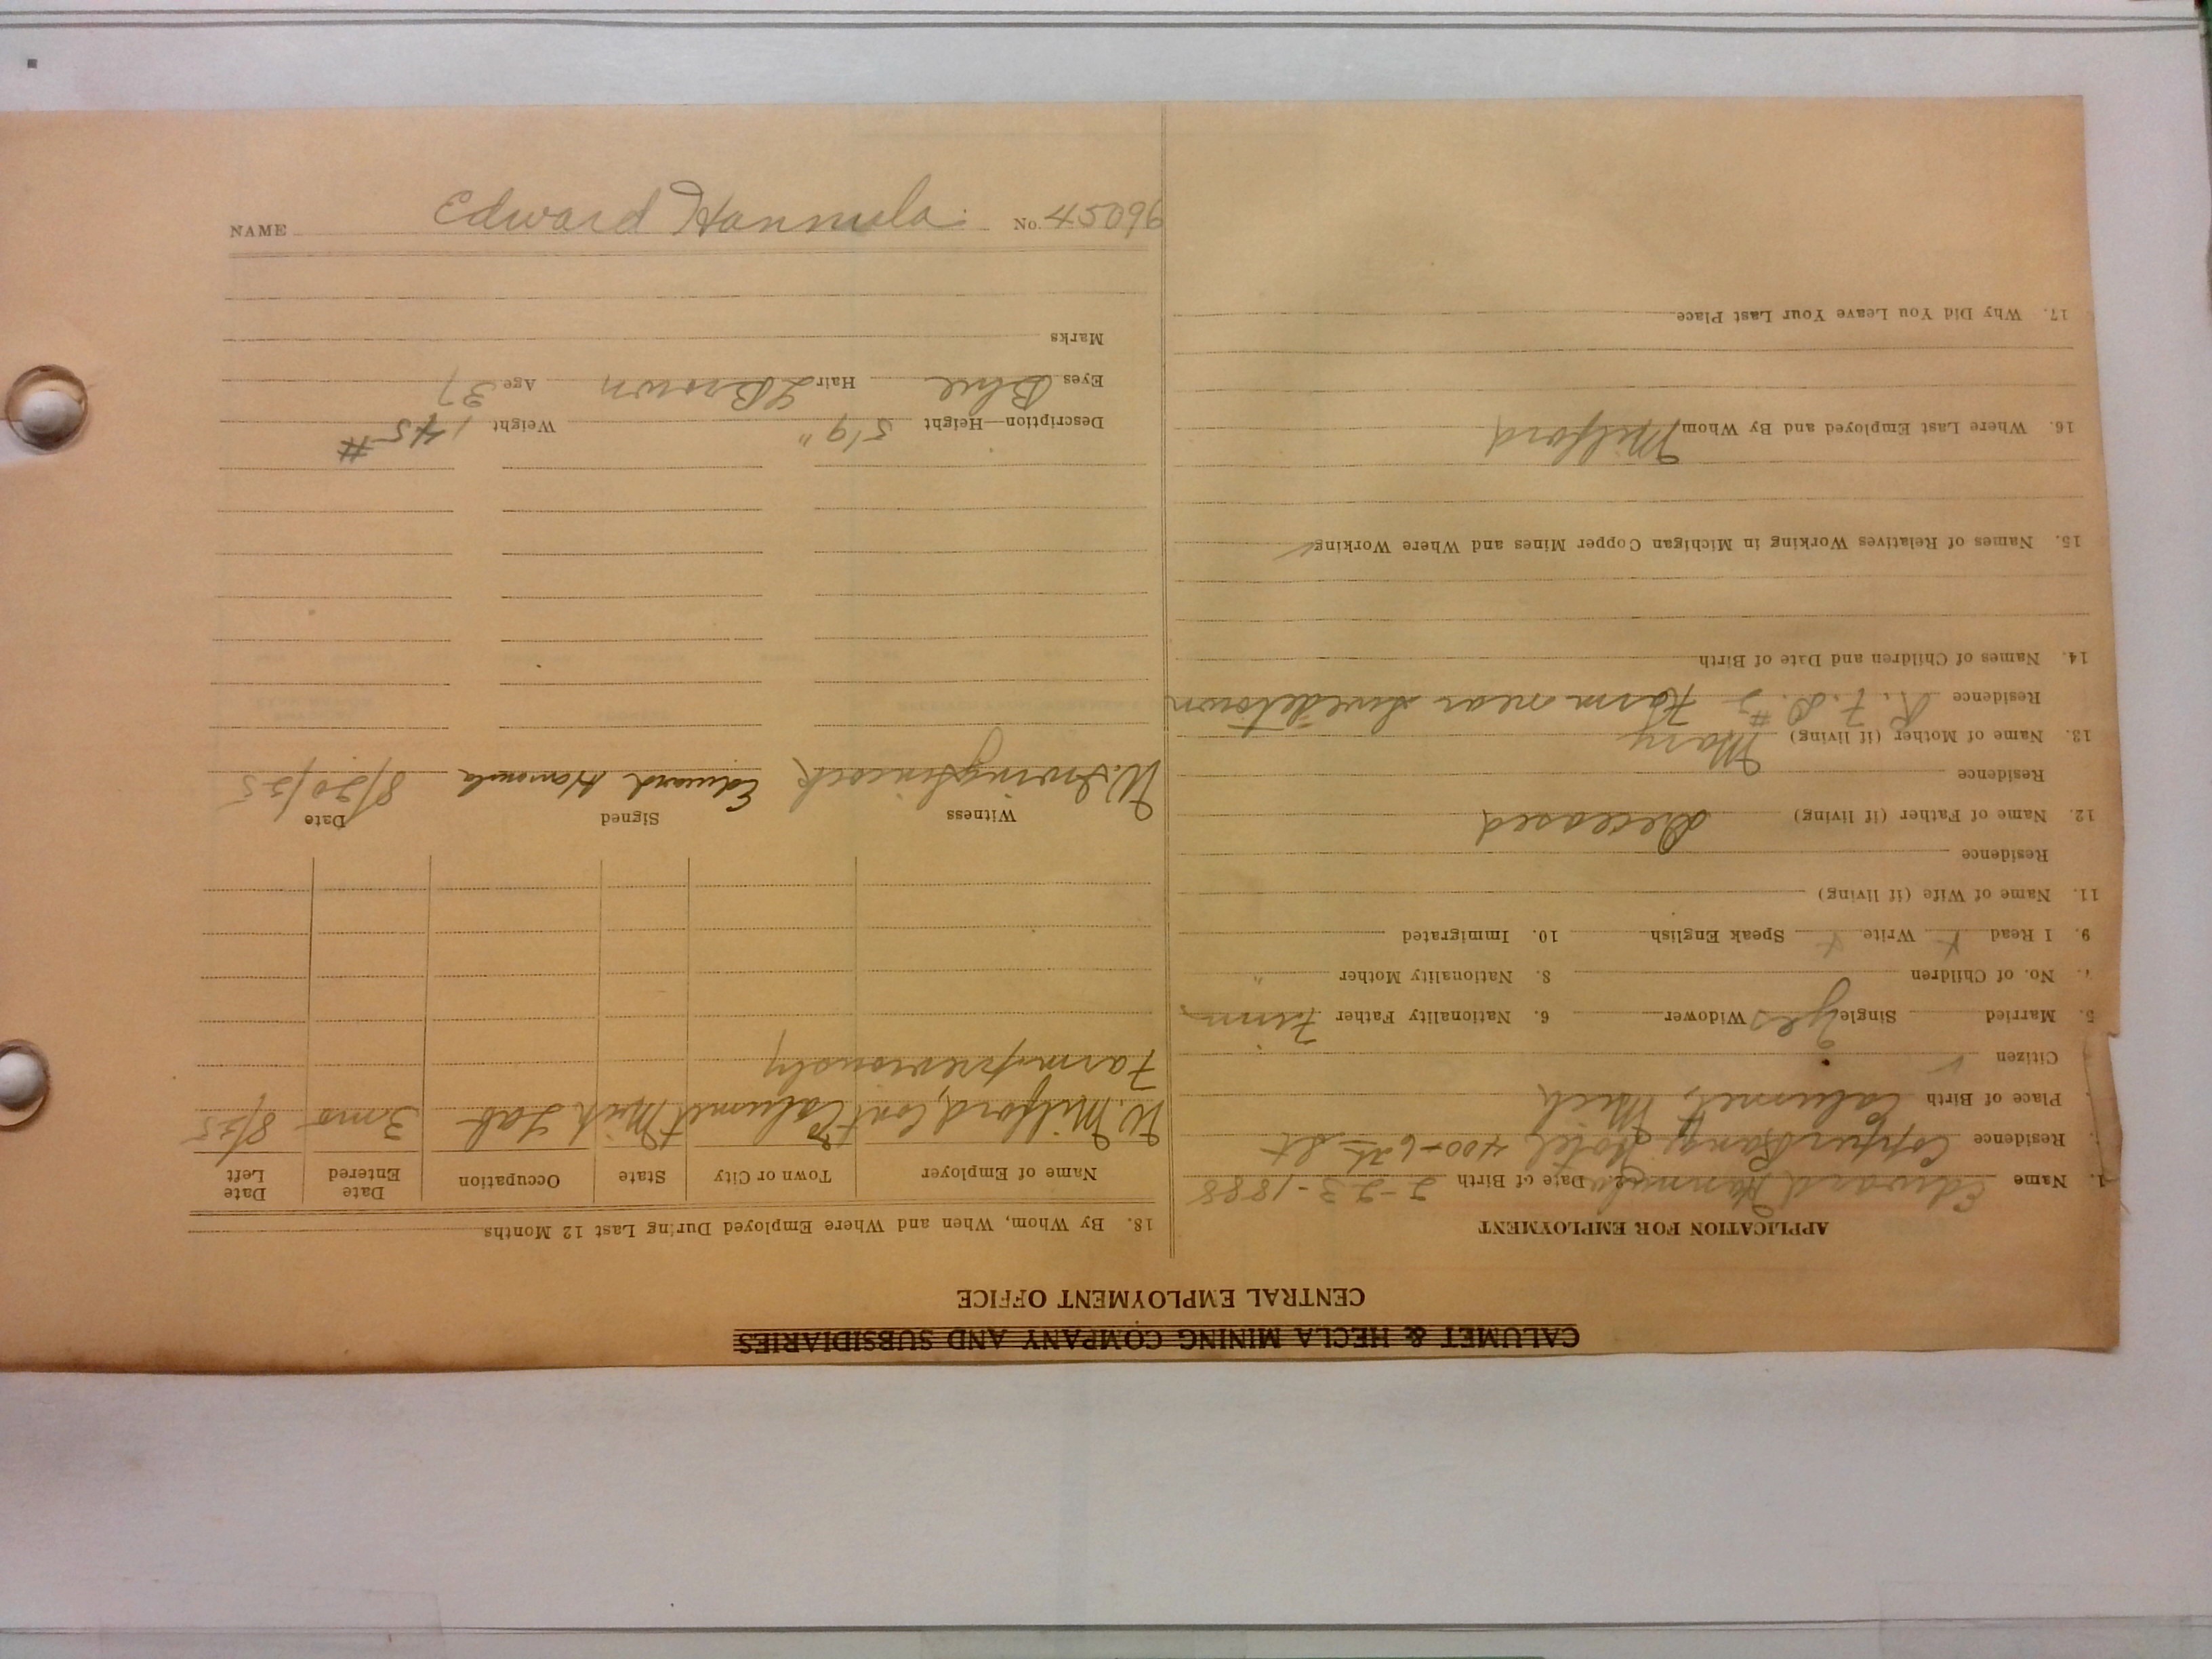 CALUMET & HECLA MINING COMPANY AND SUBSIDIARIES
CENTRAL EMPLOYMENT OFFICE
APPLICATION FOR EMPLOYMENT
1. Name Edward Hannula 2. Date of Birth 2-23-1888
Residence Copper Range Hotel 400-6th St
Place of Birth Calumet, Mich
Citizen ✓
5. Married Single Yes Widower 6. Nationality Father Finn
7. No. of Children 8. Nationality Mother "
9. I Read X Write X Speak English 10. Immigrated
11. Name of Wife (if living)
Residence
12. Name of Father (if living) Deceased
Residence
13. Name of Mother (if living) Mary
Residence R.F.D. #2 Farm near Swedetown
14. Names of Children and Date of Birth
15. Names of Relatives Working in Michigan Copper Mines and Where Working
16. Where Last Employed and By Whom Milford
17. Why Did You Leave Your Last Place
18. By Whom, When and Where Employed During Last 12 Months
Name of Employer Town or City State Occupation Date Entered Date Left
W. Milford, Contr Calumet Mich Lab 3 mo 8/35
Farm previously
Witness Signed Date
Edward Hannula 8/20/35
Description—Height 5'9" Weight 145#
Eyes Blue Hair L Brown Age 37
Marks
NAME Edward Hannula No. 45096